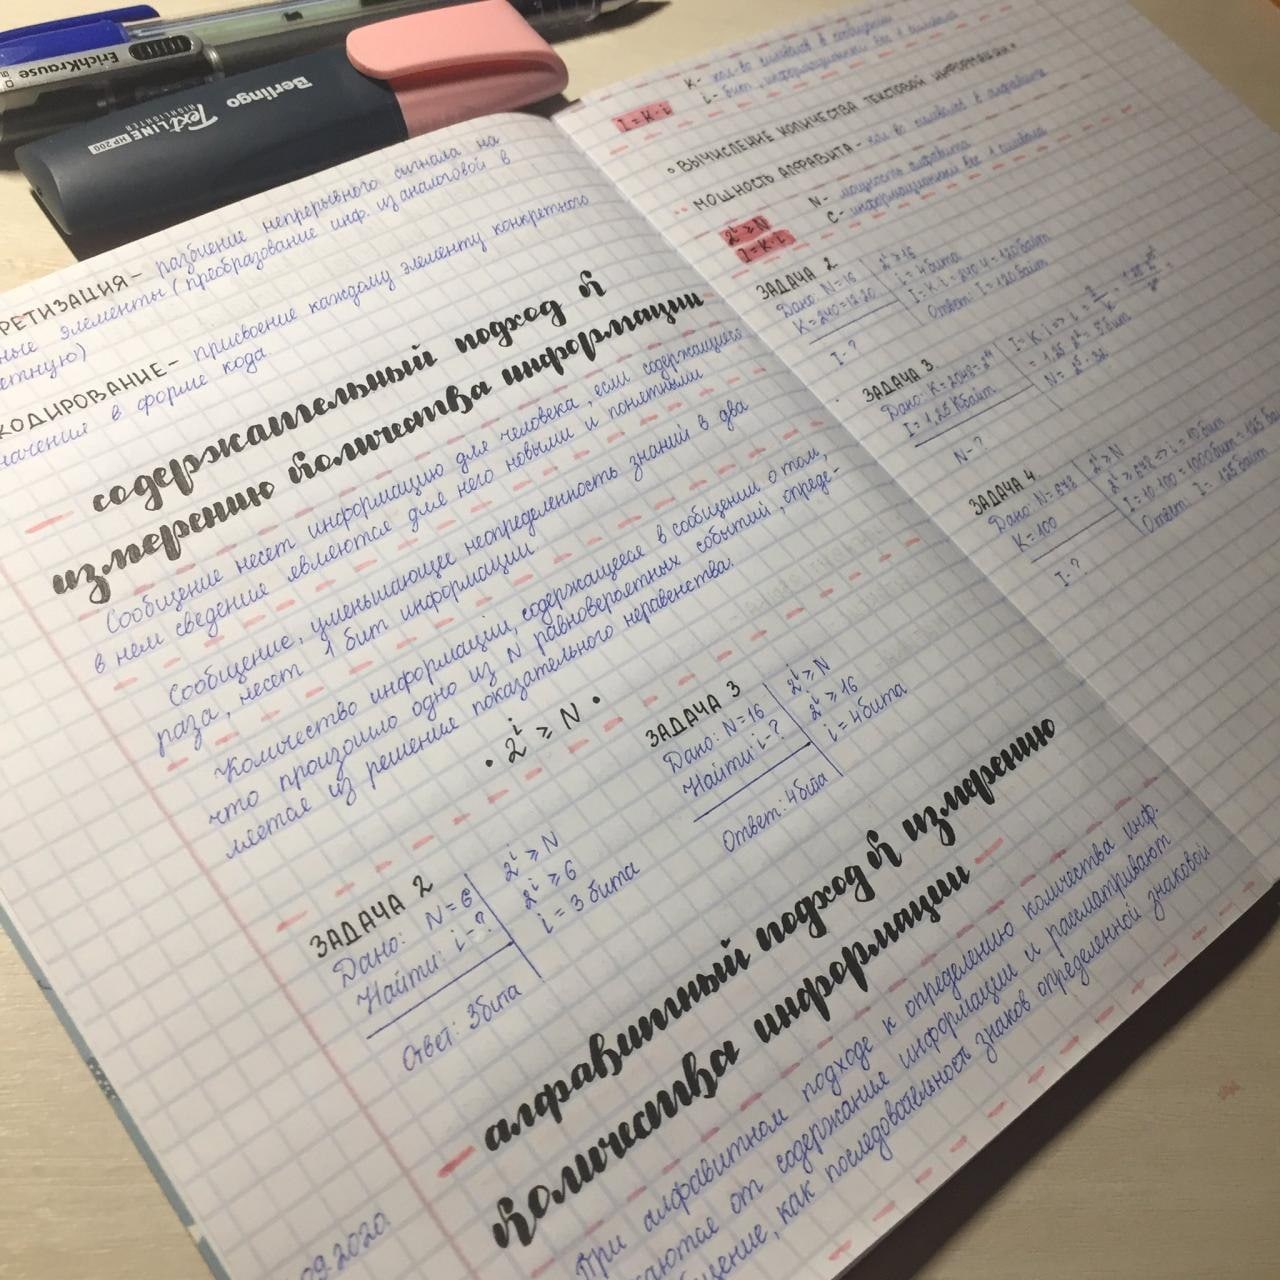 ErichKrause
Berlingo
TextLINE HP 200
HIGHLIGHTER
РЕТИЗАЦИЯ - разбиение непрерывного сигнала на
ные элементы (преобразование инф. из аналоговой в
етную)
КОДИРОВАНИЕ - присвоение каждому элементу конкретного
начения в форме кода
содержательный подход к
измерению количества информации
Сообщение несет информацию для человека, если содержащиеся
в нем сведение являются для него новыми и понятными
Сообщение, уменьшающее неопределенность знаний в два
раза, несет 1 бит информации
Количество информации, содержащееся в сообщении о том,
что произошло одно из N равновероятных событий, опреде-
ляется из решение показательного неравенства.
• 2^i ≥ N •
ЗАДАЧА 2
Дано: N=6
Найти: i-?
2^i ≥ N
2^i ≥ 6
i = 3 бита
Ответ: 3бита
ЗАДАЧА 3
Дано: N=16
Найти: i-?
2^i ≥ N
2^i ≥ 16
i = 4бита
Ответ: 4бита
алфавитный подход к измерению
количества информации
09.2020.
При алфавитном подходе к определению количества инф.
каются от содержание информации и рассматривают
бщение, как последовательность знаков определенной знаковой
I = K·i
K - кол-во символов в сообщении
i - бит, информационный вес 1 символа
• ВЫЧИСЛЕНИЕ КОЛИЧЕСТВА ТЕКСТОВОЙ ИНФОРМАЦИИ •
МОЩНОСТЬ АЛФАВИТА - кол-во символов в алфавите
2^i ≥ N
I = K·i
N - мощность алфавита
C - информационный вес 1 символа
ЗАДАЧА 2
Дано: N=16
K=240=12·20
I-?
2^i ≥ 16
i = 4бита
I = K·i = 240·4 = 120байт
Ответ: I = 120байт
ЗАДАЧА 3
Дано: K=2048=2^11
I=1,25 Кбайт
N-?
I = K·i => i =
= 5бит
N = 2^5 = 32
ЗАДАЧА 4
Дано: N=648
K=100
I-?
2^i ≥ N
2^i ≥ 648 => i = 10бит
I = 10·100 = 1000бит = 125 ба
Ответ: I = 125байт